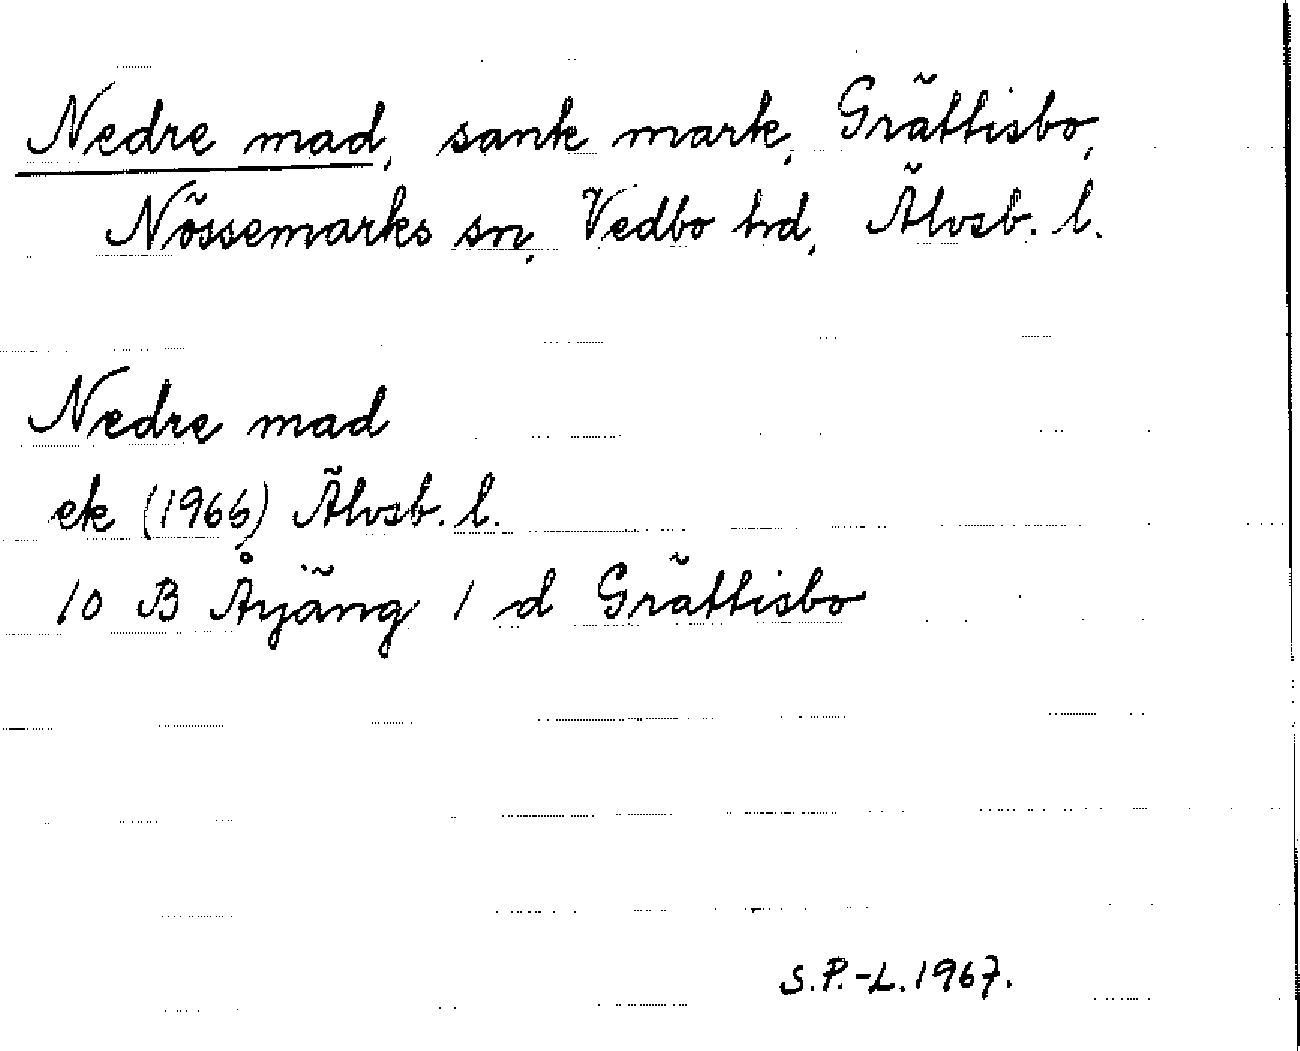 Nedre mad, sank mark, Grättisbo,
Nössemarks sn, Vedbo hd, Älvsb. l.
Nedre mad
ek (1966) Älvsb. l.
10 B Årjäng 1 d Grättisbo
S.P.-L. 1967.